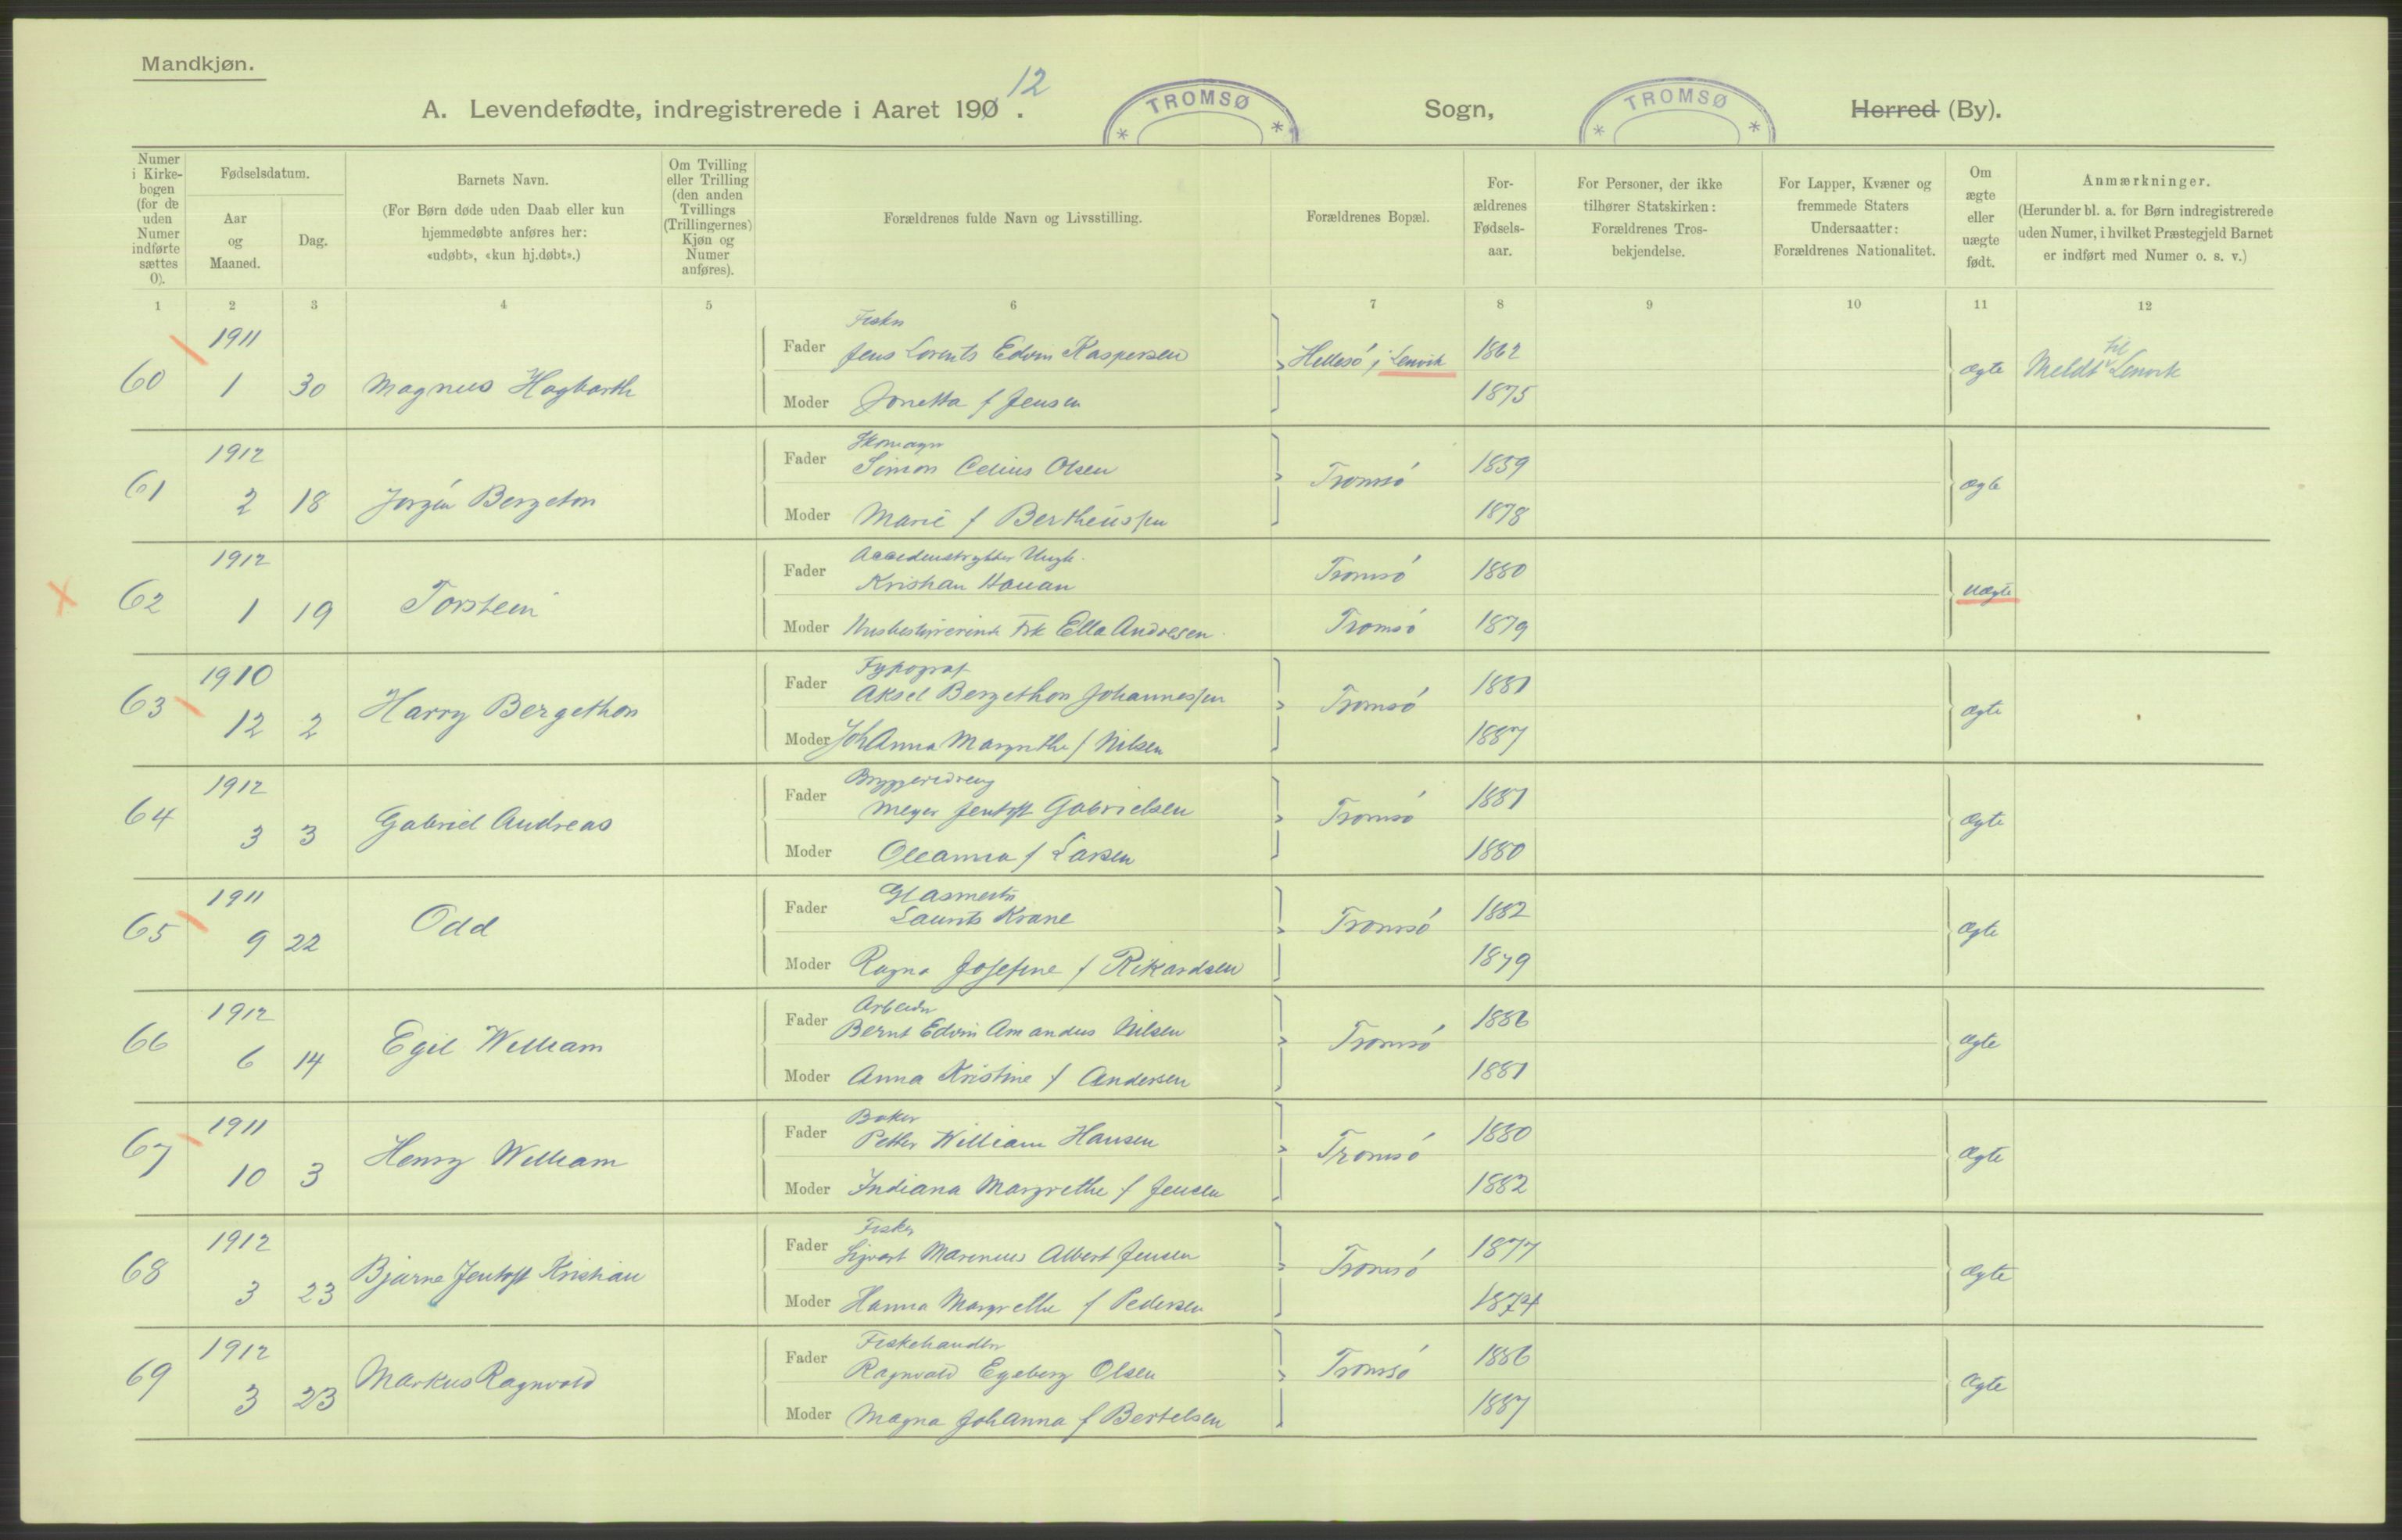 Mandkjøn.
A. Levendefødte, indregistrerede i Aaret 1912.
TROMSØ
Sogn,
TROMSØ
Herred (By).
Numer i Kirkebogen (for de uden Numer indførte sættes 0).
Fødselsdatum.
Aar og Maaned.
Dag.
Barnets Navn.
(For Børn døde uden Daab eller kun hjemmedøbte anføres her: «udøbt», «kun hj.døbt».)
Om Tvilling eller Trilling (den anden Tvillings (Trillingernes) Kjøn og Numer anføres).
Forældrenes fulde Navn og Livsstilling.
Forældrenes Bopæl.
Forældrenes Fødselsaar.
For Personer, der ikke tilhører Statskirken: Forældrenes Trosbekjendelse.
For Lapper, Kvæner og fremmede Staters Undersaatter: Forældrenes Nationalitet.
Om ægte eller uægte født.
Anmærkninger.
(Herunder bl. a. for Børn indregistrerede uden Numer, i hvilket Præstegjeld Barnet er indført med Numer o. s. v.)
1 2 3 4 5 6 7 8 9 10 11 12
60 1911 1 30 Magnus Hagbarth
Fader Fisker Jens Lorents Edvin Kaspersen Hellesö i Lenvik 1862
Moder Jonetta f Jensen 1875
ægte Meldt til Lenvik
61 1912 2 18 Jörgen Bergeton
Fader Skomager Simon Celius Olsen Tromsö 1859
Moder Marie f Bertheussen 1878
ægte
62 1912 1 19 Torstein
Fader Accidenstrykker Ungk. Kristian Hauan Tromsö 1880
Moder Husbestyrerinde Frk Ella Andresen Tromsö 1879
uægte
63 1910 12 2 Harry Bergethon
Fader Typograf Aksel Bergethon Johannessen Tromsö 1881
Moder JohAnna Margrethe f Nilsen 1887
ægte
64 1912 3 3 Gabriel Andreas
Fader Bryggeridreng Meyer Jentoft Gabrielsen Tromsö 1881
Moder Oleanna f Larsen 1880
ægte
65 1911 9 22 Odd
Fader Glasmester Laurits Krane Tromsö 1882
Moder Ragna Josefine f Rikardsen 1879
ægte
66 1912 6 14 Egil William
Fader Arbeider Bernt Edvin Amandus Nilsen Tromsö 1886
Moder Anna Kristine f Andersen 1881
ægte
67 1911 10 3 Henry William
Fader Baker Petter William Hansen Tromsö 1880
Moder Indiana Margrethe f Jensen 1882
ægte
68 1912 3 23 Bjarne Jentoft Kristian
Fader Fisker Sigvart Marenius Albert Jensen Tromsö 1877
Moder Hanna Margrethe f Pedersen 1874
ægte
69 1912 3 23 Markus Ragnvald
Fader Fiskehandler Ragnvald Egeberg Olsen Tromsö 1886
Moder Magna Johanna f Bertelsen 1887
ægte